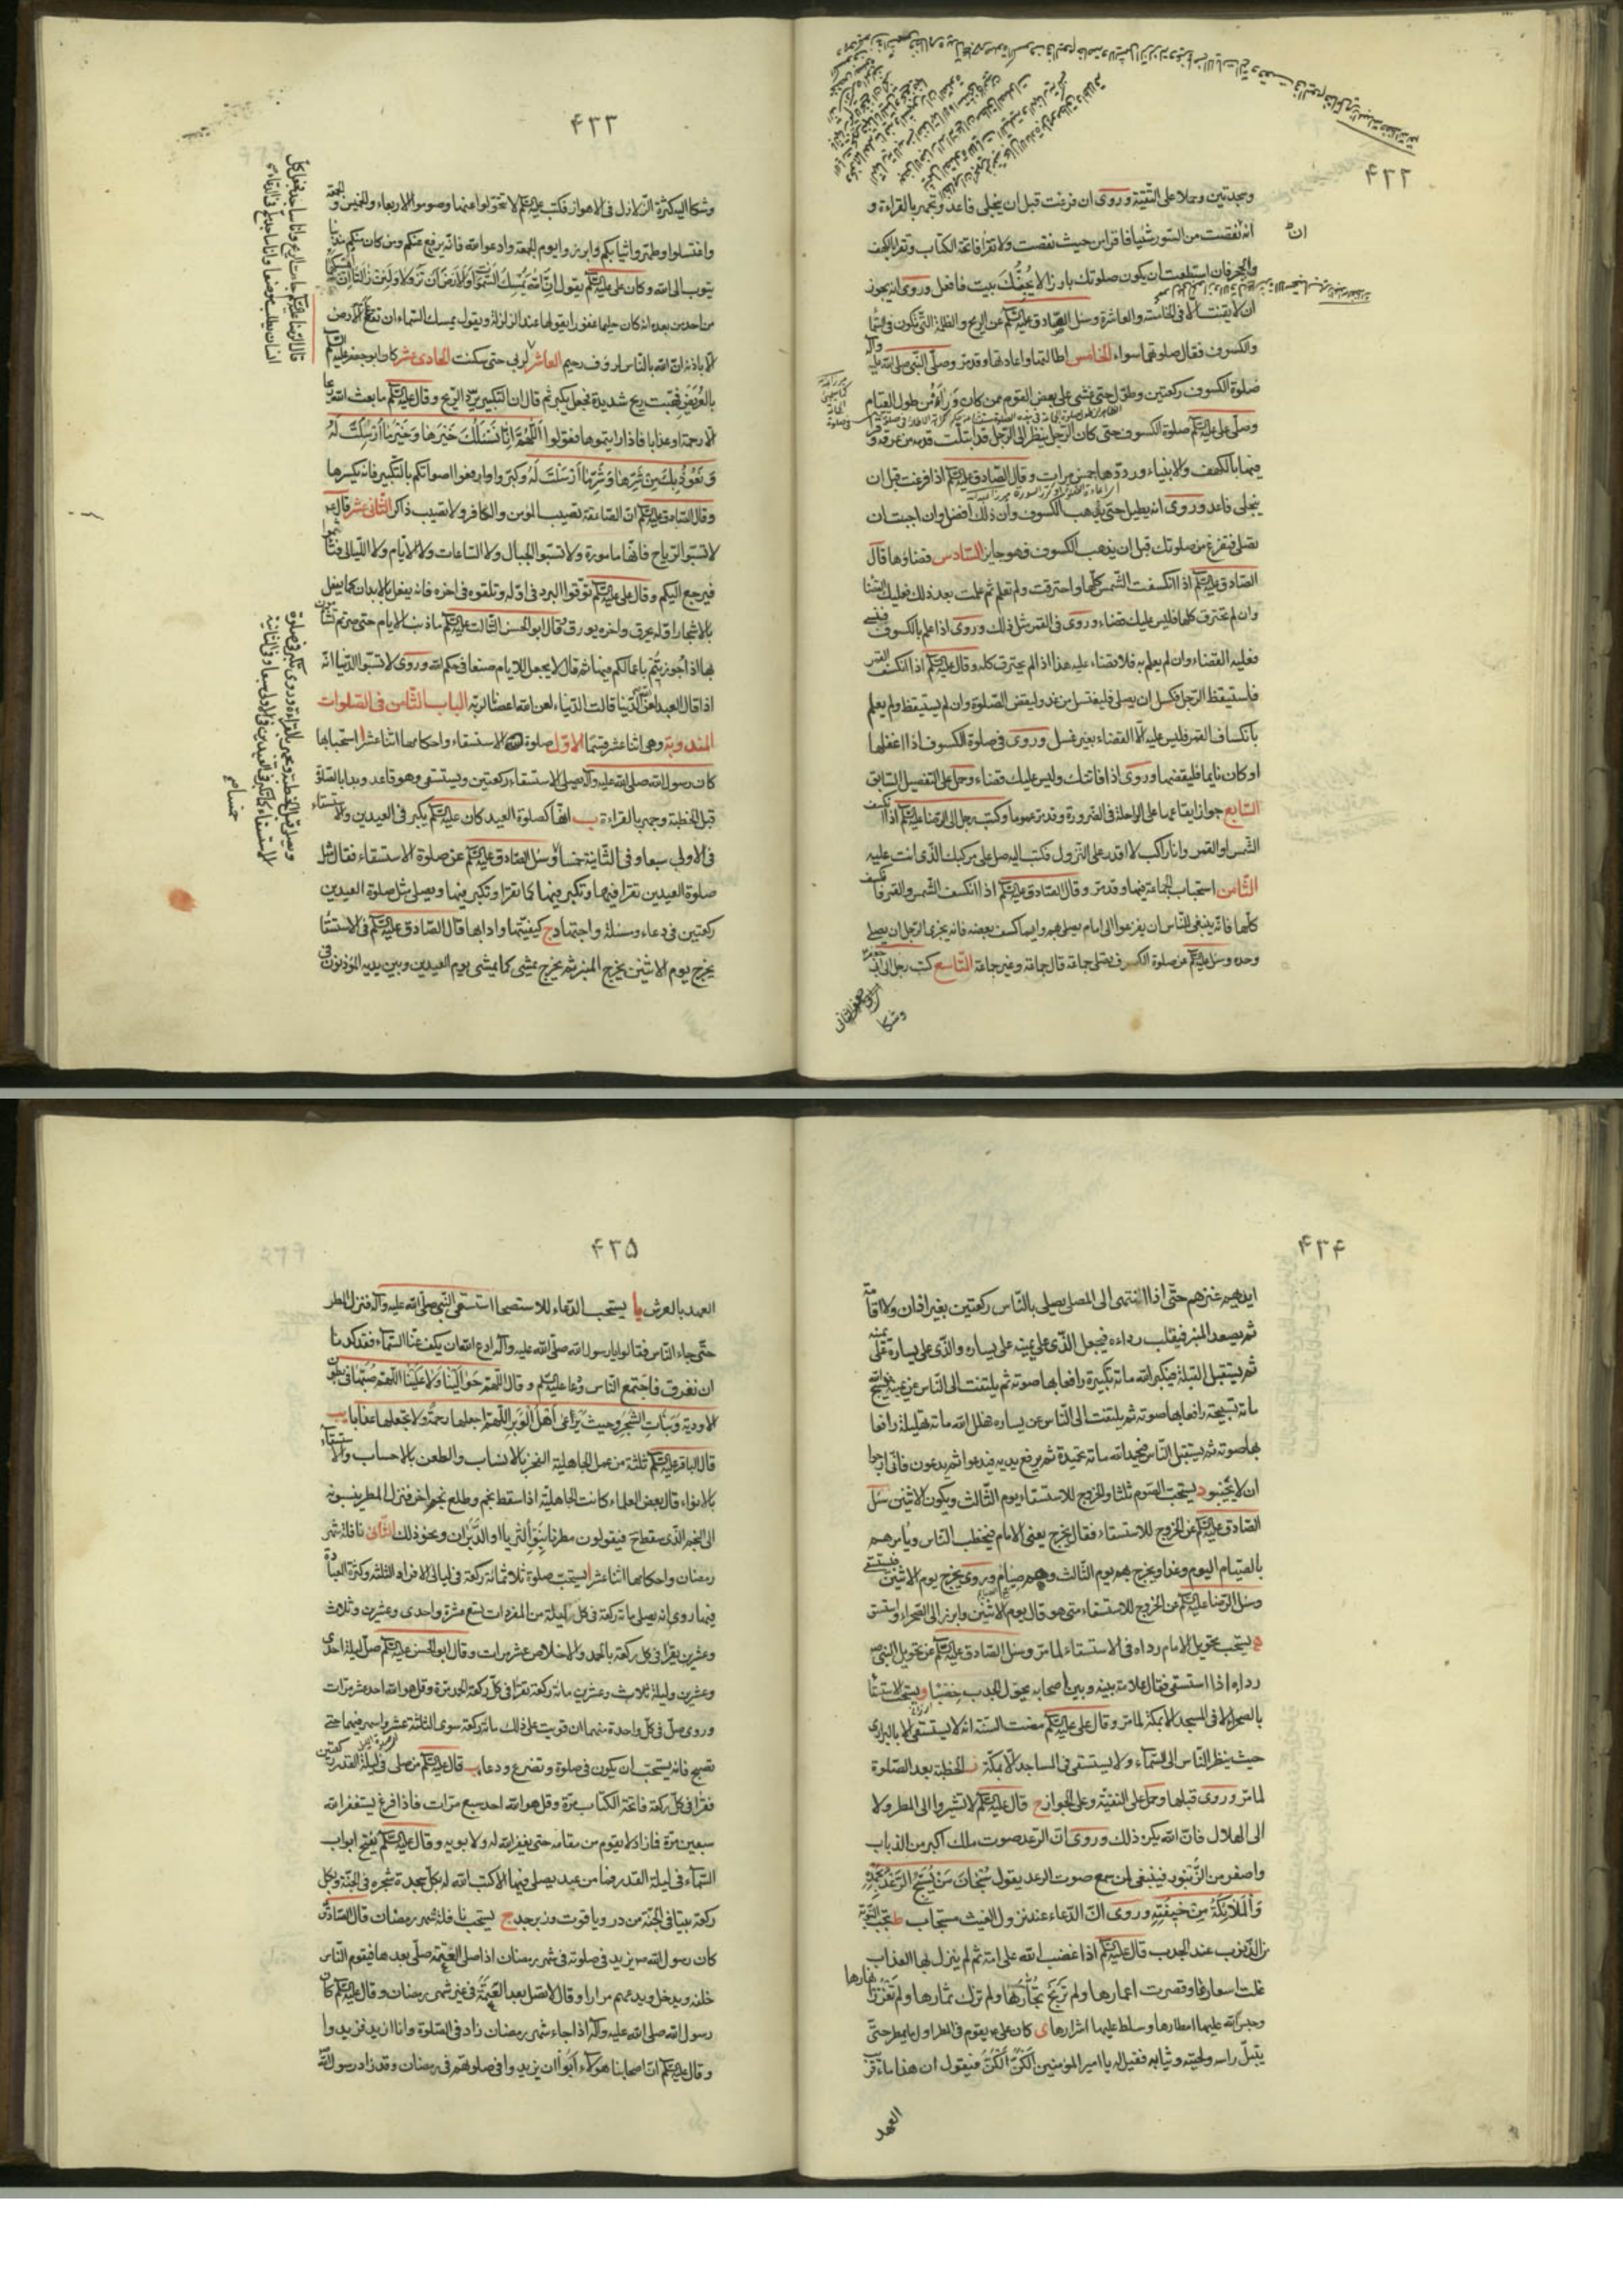 ۴۳۲
وسجدتين وحملا على التقية وروى ان فرغت قبل ان ينجلى فاعد وتجهر بالقراءة و
انه نقصت من السور شيئا فاقرا من حيث نقصت ولا تقرا فاتحة الكتاب وتقرا بالكهف
والحجر فان استطعت ان يكون صلوتك بارزا لا يجنّك بيت فافعل وروى انه يجوز
ان لا يقنت الا فى الخامسة والعاشرة وسئل الصادق عليه السلام عن الريح والظلمة التى تكون فى السماء
والكسوف فقال صلوتهما سواء الخامس اطالتها واعادتها وقد مر وصلى النبى صلى الله عليه وآله
صلوة الكسوف ركعتين وطول حتى غشى على بعض القوم ممن كان وراءه من طول القيام
وصلى على عليه السلام صلوة الكسوف حتى كان الرجل ينظر الى الرجل قد ابتلت قدمه من عرقه وقرا
فيهما بالكهف والانبياء ورددها خمس مرات وقال الصادق عليه السلام اذا فرغت قبل ان
ينجلى فاعد وروى انه يطيل حتى يذهب الكسوف وان ذلك افضل وان اجبت ان
تصلى فتفرغ من صلوتك قبل ان يذهب الكسوف فهو جايز السادس قضاؤها قال
الصادق عليه السلام اذا انكسفت الشمس كلها واحترقت ولم تعلم ثم علمت بعد ذلك فعليك القضاء
وان لم تحترق كلها فليس عليك قضاء وروى فى القمر مثل ذلك وروى اذا علم بالكسوف فنسى
فعليه القضاء وان لم يعلم به فلا قضاء عليه هذا اذا لم يحترق كله وقال عليه السلام اذا انكسف القمر
فاستيقظ الرجل فكسل ان يصلى فليغتسل من غد وليقض الصلوة وان لم يستيقظ ولم يعلم
بانكساف القمر فليس عليه الا القضاء بغير غسل وروى فى صلوة الكسوف اذا اغفلها
او كان نايما فليقضها وروى اذا فاتتك وليس عليك قضاء وحمل على التفصيل السابق
السابع جواز ايقاعها على الراحلة فى الضرورة وقد مر عموما وكتب رجل الى الرضا عليه السلام اذا انكسف
الشمس او القمر وانا راكب لا اقدر على النزول فكتب اليه صل على مركبك الذى انت عليه
الثامن استحباب الجماعة فيها وقد مر وقال الصادق عليه السلام اذا انكسف الشمس والقمر فانكسف
كلها فانه ينبغى للناس ان يفزعوا الى امام يصلى بهم وايهما كسف بعضه فانه يجزى الرجل ان يصلى
وحده وسئل عليه السلام عن صلوة الكسوف تصلى جماعة قال جماعة وغير جماعة التاسع كتب رجل الى ابى جعفر
وشكا
۴۳۳
وشكا اليه كثرة الزلازل فى الاهواز فكتب عليه السلام لا تتحولوا عنها وصوموا الاربعاء والخميس والجمعة
واغتسلوا وطهروا ثيابكم وابرزوا يوم الجمعة وادعوا الله فانه يرفع عنكم ومن كان منكم مذنبا
يتوب الى الله وكان على عليه السلام يقول ان الله يمسك السموات والارض ان تزولا ولئن زالتا ان امسكهما
من احد من بعده انه كان حليما غفورا يقولها عند الزلزلة ويقول يمسك السماء ان تقع على الارض
الا باذنه ان الله بالناس لرؤف رحيم العاشر حتى سكنت الحادى عشر كان ابو جعفر عليه السلام
بالعريض فهبت ريح شديدة فجعل يكبر ثم قال ان التكبير يرد الريح وقال عليه السلام ما بعث الله ريحا
الا رحمة او عذابا فاذا رايتموها فقولوا اللهم انا نسئلك خيرها وخير ما ارسلت له
ونعوذ بك من شرها وشر ما ارسلت له وكبروا وارفعوا اصواتكم بالتكبير فانه يكسرها
وقال الصادق عليه السلام ان الصاعقة تصيب المؤمن والكافر ولا تصيب ذاكر الثانى عشر قال
لا تسبوا الرياح فانها مامورة ولا تسبوا الجبال ولا الساعات ولا الايام ولا الليالى فتأثموا
فيرجع اليكم وقال على عليه السلام توقوا البرد فى اوله وتلقوه فى اخره فانه يفعل بالابدان كما يفعل
بالاشجار اوله يحرق واخره يورق وقال ابو الحسن الثالث عليه السلام ما ذنب الايام حتى صرتم تشأمون
بها اذا جوزيتم باعمالكم فيها ثم قال لا يجعل للايام صنعا فى حكم الله وروى لا تسبوا الدنيا انه
اذا قال العبد لعن الله الدنيا قالت الدنيا لعن الله اعصانا لربه الباب الثامن فى الصلوات
المندوبة وهى اثنا عشر قسما الاول صلوة الاستسقاء واحكامها اثنا عشر ا استحبابها
كان رسول الله صلى الله عليه وآله يصلى الاستسقاء ركعتين ويستسقى وهو قاعد وبدا بالصلوة
قبل الخطبة وجهر بالقراءة ب انها كصلوة العيد كان عليه السلام يكبر فى العيدين والاستسقاء
فى الاولى سبعا وفى الثانية خمسا وسئل الصادق عليه السلام عن صلوة الاستسقاء فقال مثل
صلوة العيدين تقرا فيها وتكبر فيها كما تقرا وتكبر فيها ويصلى مثل صلوة العيدين
ركعتين فى دعاء ومسئلة واجتهاد ج كيفيتها وادابها قال الصادق عليه السلام فى الاستسقاء
يخرج يوم الاثنين يخرج المنبر ثم يخرج يمشى كما يمشى يوم العيدين وبين يديه المؤذنون فى
۴۳۴
ايديهم عنزهم حتى اذا انتهى الى المصلى يصلى بالناس ركعتين بغير اذان ولا اقامة
ثم يصعد المنبر فيقلب رداءه فيجعل الذى على يمينه على يساره والذى على يساره على يمينه
ثم يستقبل القبلة فيكبر الله مائة تكبيرة رافعا بها صوته ثم يلتفت الى الناس عن يمينه فيسبح الله
مائة تسبيحة رافعا بها صوته ثم يلتفت الى الناس عن يساره فهلل الله مائة تهليلة رافعا
بها صوته ثم يستقبل الناس فيحمد الله مائة تحميدة ثم يرفع يديه فيدعو ثم يدعون فانى ارجوا
ان لا يخيبوا د يستحب الصوم ثلثا والخروج للاستسقاء يوم الثالث ويكون الاثنين سئل
الصادق عليه السلام عن الخروج للاستسقاء فقال يخرج يعنى الامام فيخطب الناس ويأمرهم
بالصيام اليوم وغدا ويخرج بهم يوم الثالث وهم صيام وروى يخرج يوم الاثنين فيستسقى
وسئل الرضا عليه السلام عن الخروج للاستسقاء متى هو قال يوم الاثنين وابرز الى الصحراء واستسق
ه يستحب تحويل الامام رداه فى الاستسقاء لما مر وسئل الصادق عليه السلام عن تحويل النبى ص
رداءه اذا استسقى فقال علامة بينه وبين اصحابه يحول الجدب خصبا و يستحب الاستسقاء
بالصحراء لا فى المسجد الا بمكة لما مر وقال على عليه السلام مضت السنة انه لا يستسقى الا بالبرارى
حيث ينظر الناس الى السماء ولا يستسقى فى المساجد الا بمكة ز الخطبة بعد الصلوة
لما مر وروى قبلها وحمل على التقية وعلى الجواز ح قال عليه السلام لا تشيروا الى المطر ولا
الى الهلال فان الله يكره ذلك وروى ان الرعد صوت ملك اكبر من الذباب
واصغر من الزنبور فينبغى لمن سمع صوت الرعد يقول سبحان من يسبح الرعد بحمده
والملائكة من خيفته وروى ان الدعاء عند نزول الغيث مستجاب ط يجب التوبة
من الذنوب عند الجدب قال عليه السلام اذا غضب الله على امة ثم لم ينزل بها العذاب
غلت اسعارها وقصرت اعمارها ولم تربح تجارها ولم تزك ثمارها ولم تغزر انهارها
وحبس الله عليها امطارها وسلط عليها اشرارها ى كان على ع يقوم فى المطر اول ما يمطر حتى
يبتل راسه ولحيته وثيابه فقيل له يا امير المؤمنين الكن الكن فيقول ان هذا ماء قرب
العهد
۴۳۵
العهد بالعرش يا يستحب الدعاء للاستصحا استسقى النبى صلى الله عليه وآله فنزل المطر
حتى جاء الناس فقالوا يا رسول الله صلى الله عليه وآله ادع الله ان يكف عنا السماء فقد كدنا
ان نغرق فاجتمع الناس ودعا عليه السلام وقال اللهم حوالينا ولا علينا اللهم صبها فى بطون
الاودية ونبات الشجر وحيث يرعى اهل الوبر اللهم اجعلها رحمة ولا تجعلها عذابا يب
قال الباقر عليه السلام ثلثة من عمل الجاهلية الفخر بالانساب والطعن بالاحساب والاستسقاء
بالانواء قال بعض العلماء كانت الجاهلية اذا سقط نجم وطلع نجم اخر فنزل المطر ينسبونه
الى النجم الذى سقط ح فيقولون مطرنا بنوء الثريا او الدبران ونحو ذلك الثانى نافلة شهر
رمضان واحكامها اثنا عشر ا يستحب صلوة ثلاثمائة ركعة فى ليالى الافراد الثلثة وكثرة العبادة
فيها روى انه يصلى مائة ركعة فى كل ليلة من المفردات تسع عشرة واحدى وعشرين وثلاث
وعشرين يقرا فى كل ركعة بالحمد والاخلاص عشر مرات وقال ابو الحسن عليه السلام صل ليلة احدى
وعشرين وليلة ثلاث وعشرين مائة ركعة تقرا فى كل ركعة الحمد مرة وقل هو الله احد عشر مرات
وروى صل فى كل واحدة منهما ان قويت على ذلك مائة ركعة سوى الثلثة عشر واسهر فيهما حتى
تصبح فانه يستحب ان يكون فى صلوة وتضرع ودعاء ب قال عليه السلام من صلى فى ليلة القدر ركعتين
فقرا فى كل ركعة فاتحة الكتاب مرة وقل هو الله احد سبع مرات فاذا فرغ يستغفر الله
سبعين مرة فانه لا يقوم من مقامه حتى يغفر الله له ولابويه وقال عليه السلام يفتح ابواب
السماء فى ليلة القدر فما من عبد يصلى فيها الا كتب الله له بكل سجدة شجرة فى الجنة وبكل
ركعة بيتا فى الجنة من در وياقوت وزبرجد ج يستحب نافلة شهر رمضان قال الصادق
كان رسول الله ص يزيد فى صلوته فى شهر رمضان اذا صلى العتمة صلى بعدها فيقوم الناس
خلفه ويدخل ويدعهم مرارا وقال لا تصل بعد العتمة فى غير شهر رمضان وقال عليه السلام كان
رسول الله صلى الله عليه وآله اذا جاء شهر رمضان زاد فى الصلوة وانا ازيد فزيدوا
وقال عليه السلام ان اصحابنا هؤلاء ابوا ان يزيدوا فى صلوتهم فى رمضان وقد زاد رسول الله